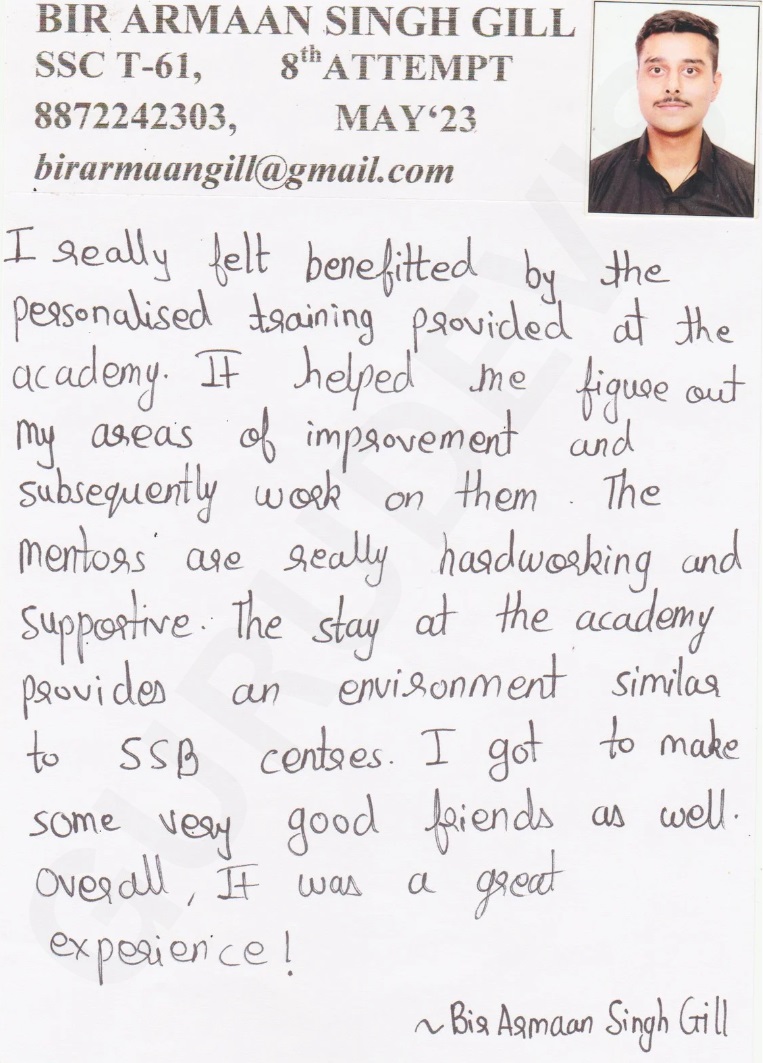 BIR ARMAAN SINGH GILL
SSC T-61, 8th ATTEMPT
8872242303, MAY‘23
birarmaangill@gmail.com
I really felt benefitted by the
personalised training provided at the
academy. It helped me figure out
my areas of improvement and
subsequently work on them. The
mentors are really hardworking and
supportive. The stay at the academy
provides an environment similar
to SSB centres. I got to make
some very good friends as well.
Overall, It was a great
experience!
~Bir Armaan Singh Gill